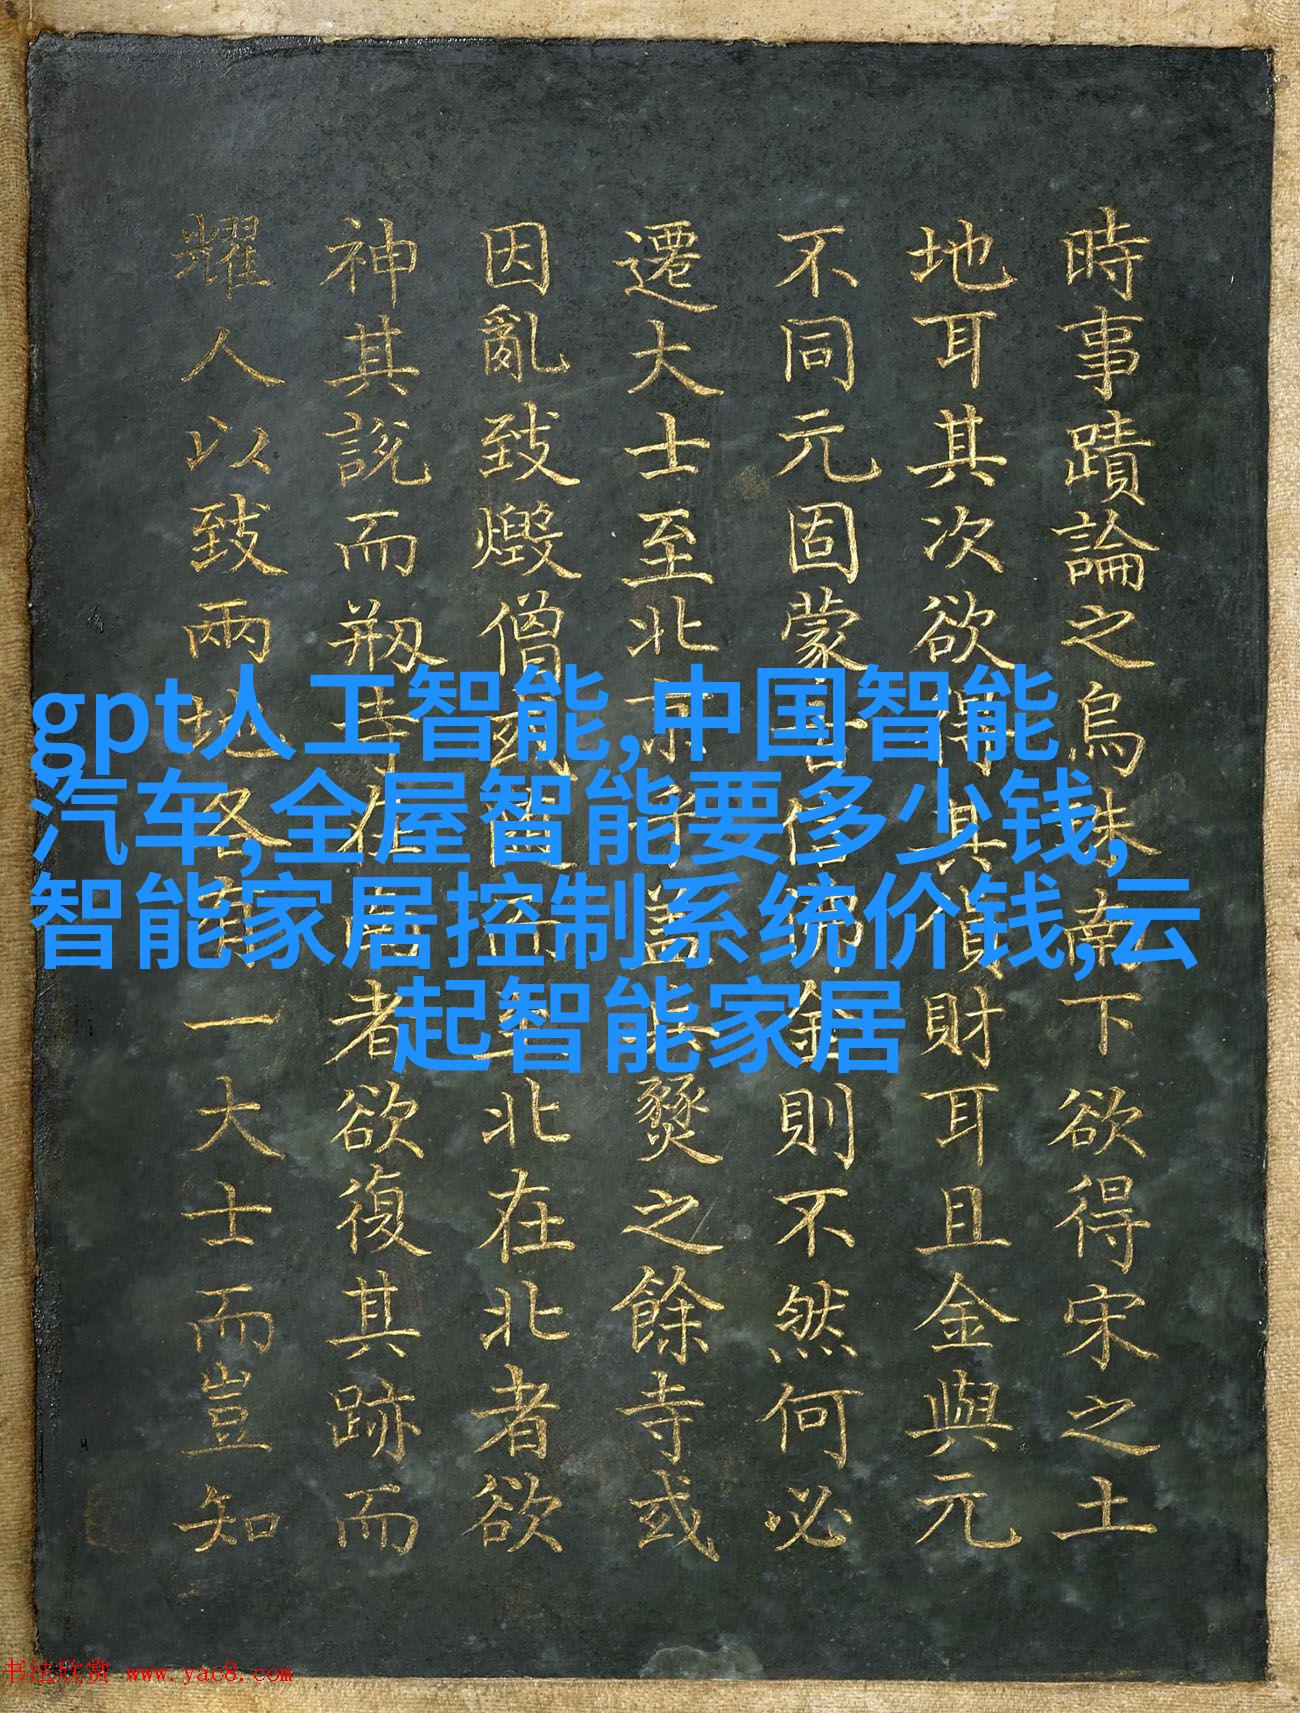 時事蹟論之烏珠南下欲得宋之土
地耳其次欲得其貨財耳且金與元
不同元固蒙古信佛金則不然何必
遷大士至北京乎蓋兵燹之餘寺或
因亂致燬僧或至北在北者欲
神其說而剏寺在南者欲復其跡而
耀人以致兩地各一大士而豈知
gpt人工智能,中国智能
汽车,全屋智能要多少钱,
智能家居控制系统价钱,云
起智能家居
书法欣赏 www.yac8.com